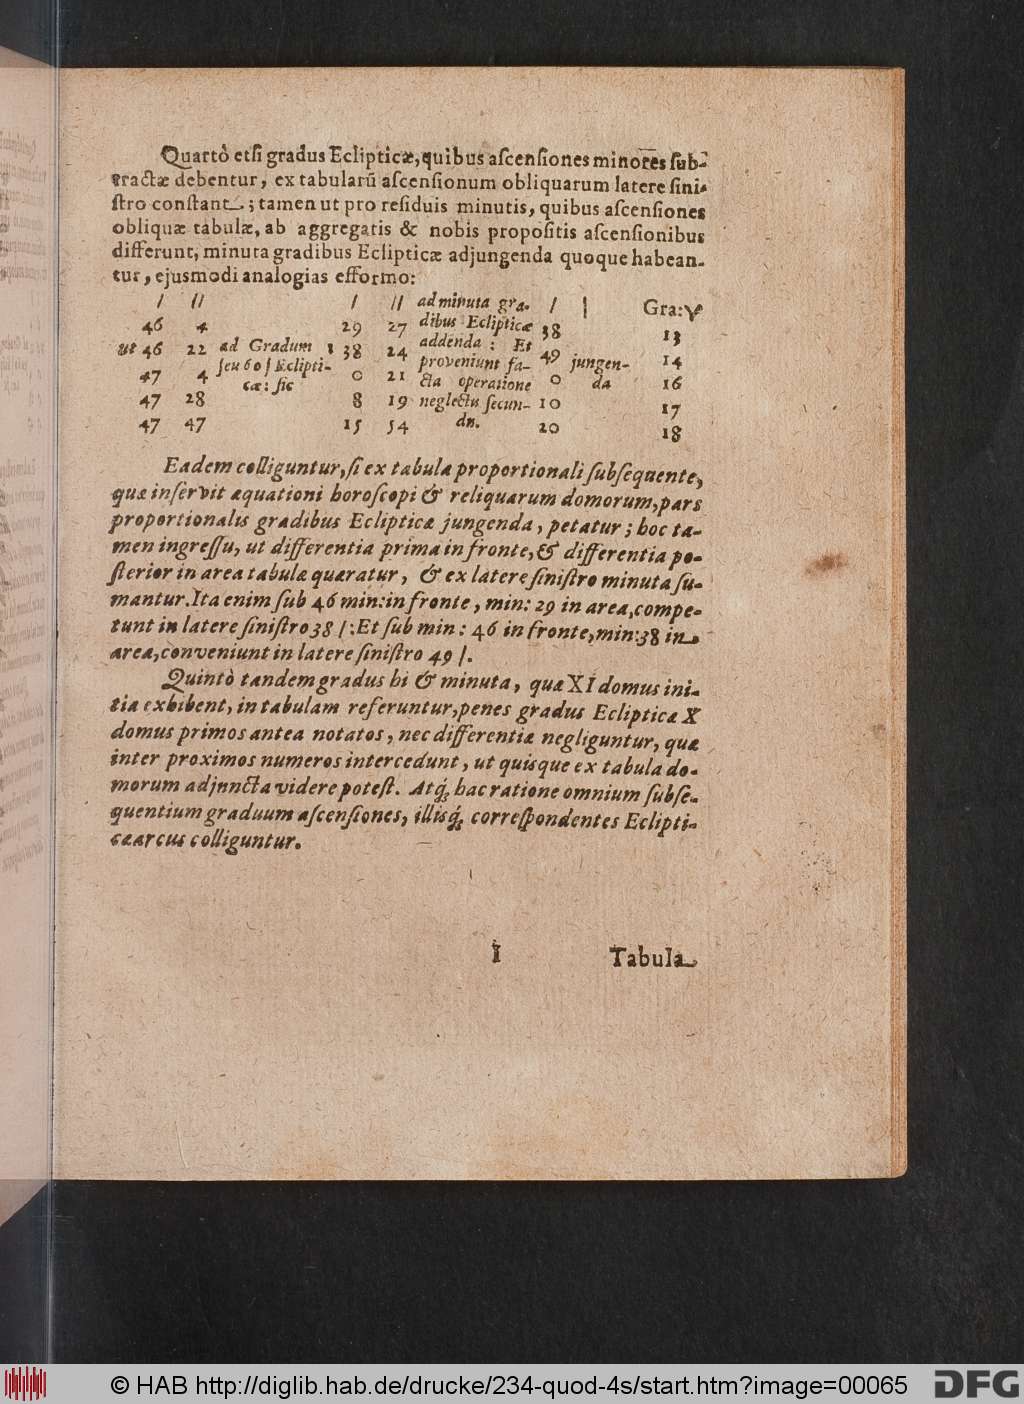 Quartò etsi gradus Eclipticæ, quibus ascensiones minores sub-
tractæ debentur, ex tabularũ ascensionum obliquarum latere sini-
stro constant; tamen ut pro residuis minutis, quibus ascensiones
obliquæ tabulæ, ab aggregatis & nobis propositis ascensionibus
differunt, minuta gradibus Eclipticæ adjungenda quoque habean-
tur, ejusmodi analogias efformo:
/ // / // ad minuta gra- / | Gra: ♈
46 4 29 27 dibus Eclipticæ 38 13
ut 46 22 ad Gradum 1 38 24 addenda: Et 49 jungen- 14
47 4 seu 60 / Eclipti- 0 21 proveniunt fa- 0 da 16
47 28 cæ: sic 8 19 cta operatione 10 17
47 47 15 54 neglectis secun- 20 18
dis.
Eadem colliguntur, si ex tabula proportionali subsequente,
quæ inservit æquationi horoscopi & reliquarum domorum, pars
proportionalis gradibus Eclipticæ jungenda, petatur; hoc ta-
men ingressu, ut differentia prima in fronte, & differentia po-
sterior in area tabulæ quæratur, & ex latere sinistro minuta su-
mantur. Ita enim sub 46 min: in fronte, min: 29 in area, compe-
tunt in latere sinistro 38 /: Et sub min: 46 in fronte, min: 38 in
area, conveniunt in latere sinistro 49 /.
Quintò tandem gradus hi & minuta, quæ XI domus ini-
tia exhibent, in tabulam referuntur, penes gradus Eclipticæ X
domus primos antea notatos, nec differentiæ negliguntur, quæ
inter proximos numeros intercedunt, ut quisque ex tabula do-
morum adjuncta videre potest. Atq́; hac ratione omnium subse-
quentium graduum ascensiones, illisq́; correspondentes Eclipti-
cæ arcus colliguntur.
I Tabula
© HAB http://diglib.hab.de/drucke/234-quod-4s/start.htm?image=00065
DFG